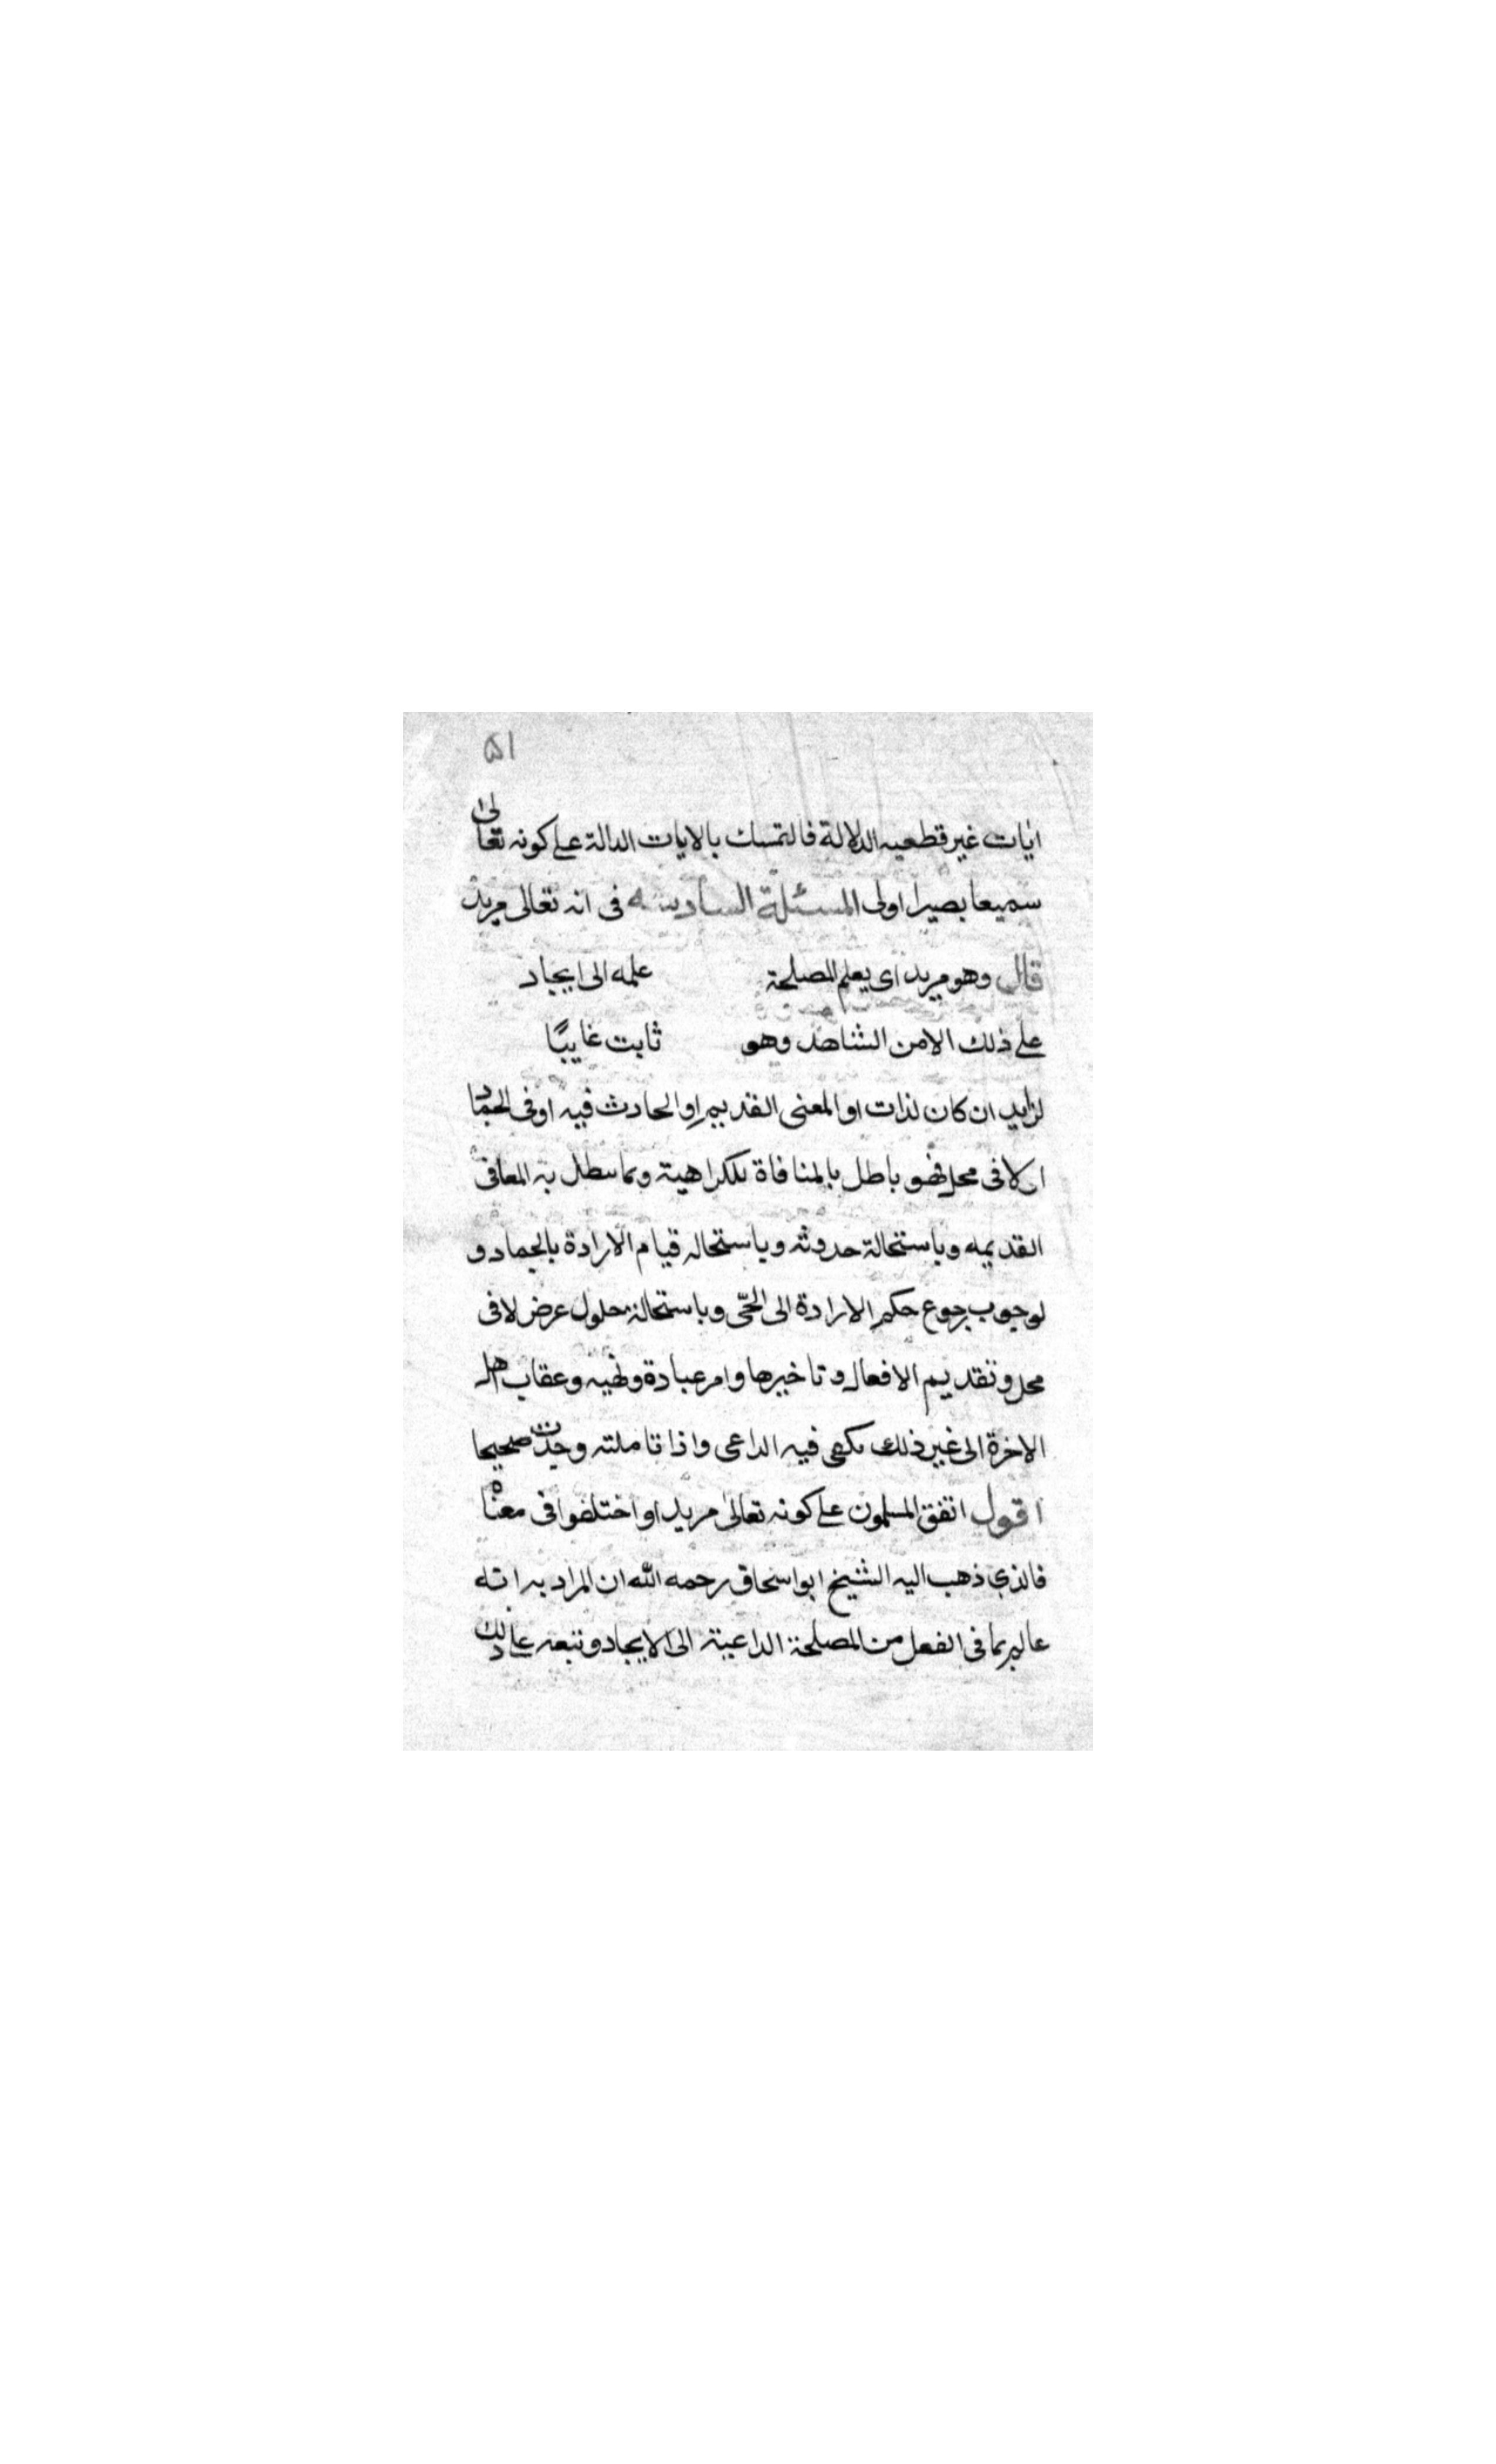 ۵۱
ايات غير قطعيه الدلالة فالتمسك بالايات الدالة على كونه تعالى
سميعا بصيرا اولى المسئلة السادسه فى انه تعالى مريد
قال وهو مريد اى يعلم المصلحة علمه الى ايجاد
على ذلك الامن الشاهد وهو ثابت غايبًا
لزايد ان كان لذات او المعنى القديم او الحادث فيه او فى الجماد
او لا فى محل فهو باطل بالمنافاة للكراهية وبما سطل به المعانى
القديمه وباستحالة حدوثه وباستحاله قيام الارادة بالجماد و
لوجوب رجوع حكم الارادة الى الحىّ وباستحالة حلول عرض لا فى
محل وتقديم الافعال وتاخيرها وامر عبادة ونهيه وعقاب اهل
الاخرة الى غير ذلك يكفى فيه الداعى واذا تاملته وجدت صحيحا
اقول اتفق المسلمون على كونه تعالى مريدا واختلفوا فى معناه
فالذي ذهب اليه الشيخ ابو اسحاق رحمه الله ان المراد به انه
عالم بما فى الفعل من المصلحة الداعية الى الايجاد وتبعه على ذلك